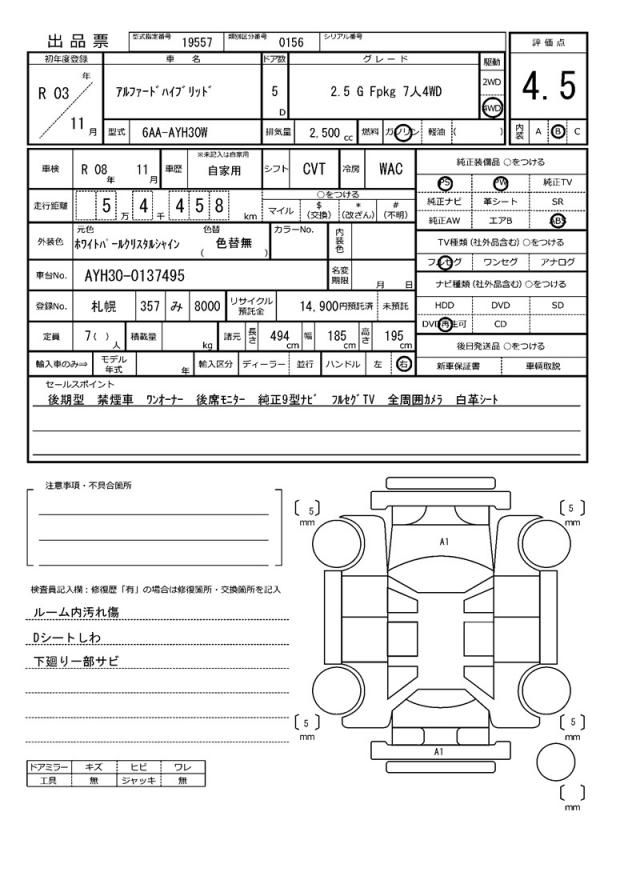 出品票 型式指定番号 19557 類別区分番号 0156 シリアル番号
評価点
4.5
初年度登録 車名 ドア数 グレード 駆動
R 03 年 11 月 アルファードハイブリッド 5 D 2.5 G Fpkg 7人4WD 2WD 4WD
型式 6AA-AYH30W 排気量 2,500 cc 燃料 ガソリン 軽油 ( ) 内装 A B C
車検 R 08 年 11 月 車歴 ※未記入は自家用 自家用 シフト CVT 冷房 WAC
走行距離 5 万 4 千 4 5 8 km ○をつける マイル $ (交換) * (改ざん) # (不明)
外装色 元色 ホワイトパールクリスタルシャイン 色替 ( 色替無 ) カラーNo. 内装色
車台No. AYH30-0137495 名変期限 月 日
登録No. 札幌 357 み 8000 リサイクル預託金 14,900円預託済 未預託
定員 7( ) 人 積載量 kg 諸元 長さ 494 cm 幅 185 cm 高さ 195 cm
輸入車のみ⇒ モデル年式 年 輸入区分 ディーラー 並行 ハンドル 左 右
純正装備品 ○をつける
PS PW 純正TV
純正ナビ 革シート SR
純正AW エアB ABS
TV種類 (社外品含む) ○をつける
フルセグ ワンセグ アナログ
ナビ種類 (社外品含む) ○をつける
HDD DVD SD
DVD再生可 CD
後日発送品 ○をつける
新車保証書 車輌取説
セールスポイント
後期型 禁煙車 ワンオーナー 後席モニター 純正9型ナビ フルセグTV 全周囲カメラ 白革シート
注意事項・不具合箇所
検査員記入欄：修復歴「有」の場合は修復箇所・交換箇所を記入
ルーム内汚れ傷
Dシートしわ
下廻り一部サビ
ドアミラー キズ ヒビ ワレ
工具 無 ジャッキ 無
〔 5 〕 mm
〔 5 〕 mm
A1
〔 5 〕 mm
〔 5 〕 mm
A1
〔 〕 mm